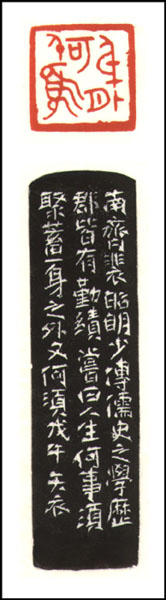 身外
何須
南齊裴昭明少傳儒史之學歷
郡皆有勤績嘗曰人生何事須
聚蓄一身之外又何須戊午矢衣